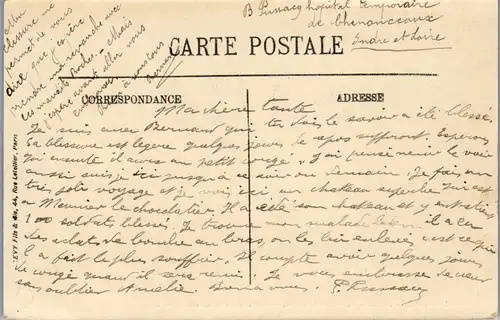 Ma
blessure me
permet de vous
dire que j'espère
prendre ma revanche avec
ces maudits Boches. Mais
j'espère avant aller vous
embrasser
à vous tous
Bernard
B Pussacq hôpital temporaire
de Chenonceaux
Indre et Loire
CARTE POSTALE
CORRESPONDANCE
ADRESSE
Ma chère tante
Je suis avec Bernard qui tu dois le savoir a été blessé.
Sa blessure est légère quelques jours de repos suffiront. Espérons
qu'ensuite il aura un petit congé. J'ai pensé venir le voir
aussi suis-je ici jusqu'à ce soir ou demain. J'ai fait un
très joli voyage et je vois ici un château superbe qui est
a Meunier le chocolatier. Il a cédé son château et y entretient
100 soldats blessés. Je trouve mon malade bien il a eu
des éclats de bombe au bras, on les lui enlève c'est ce qui
l'a fait le plus souffrir. Il compte avoir quelques jours
de congé quand il sera remis. Je vous embrasse de cœur
sans oublier Amélie. Bien à vous. P. Pussacq
LEVY FILS & Cie, 44, Rue Letellier, Paris